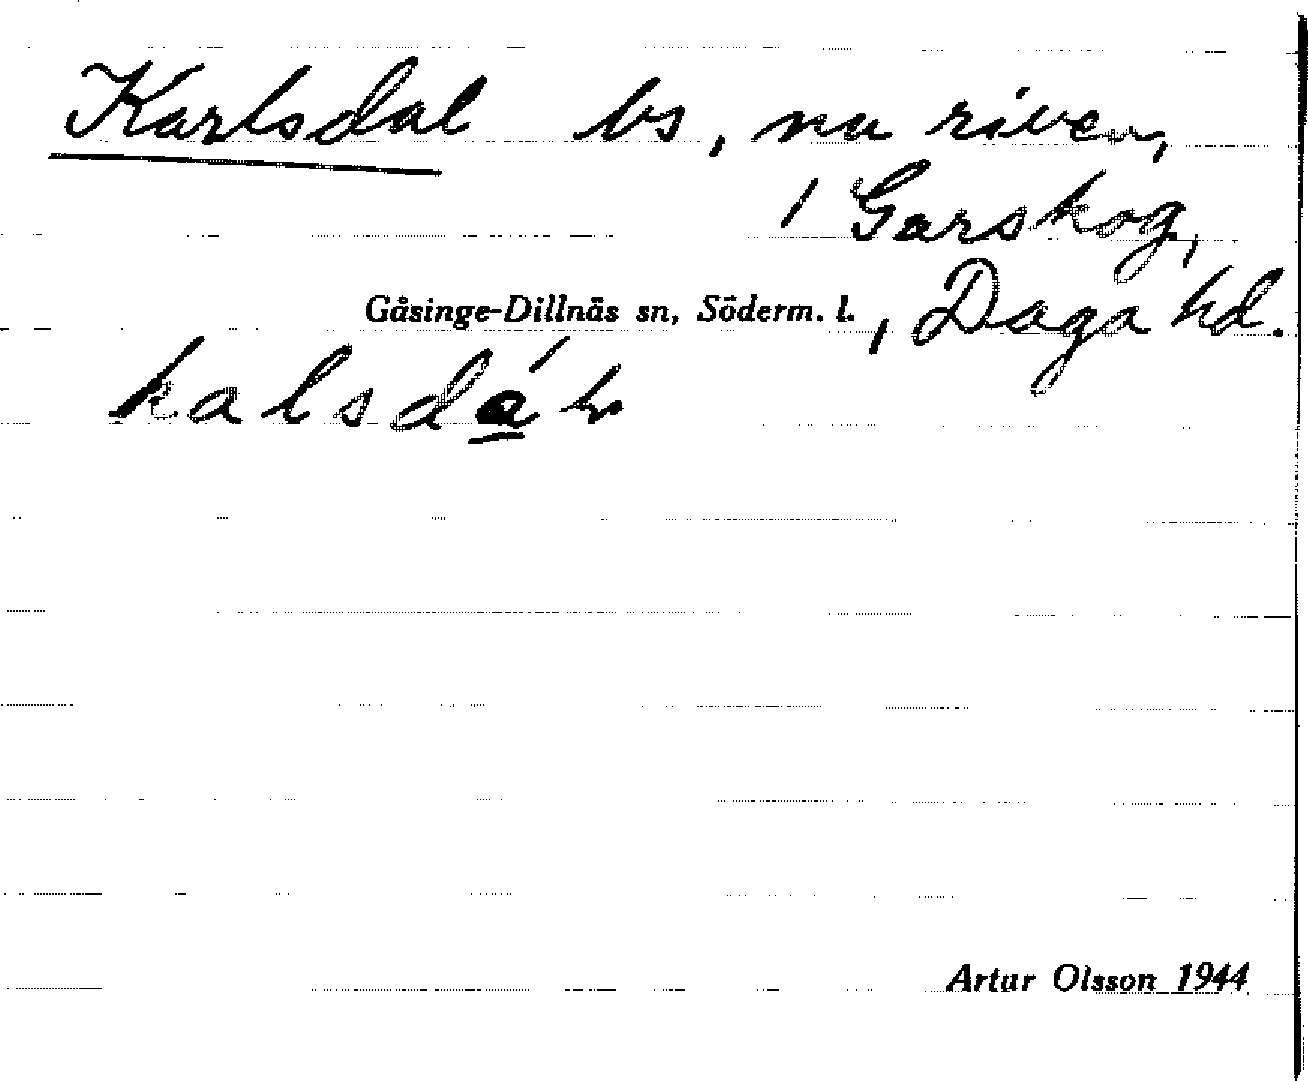 Karlsdal bs, nu riven,
/ Garskog,
Gåsinge-Dillnäs sn, Söderm. l., Daga hd.
Artur Olsson 1944